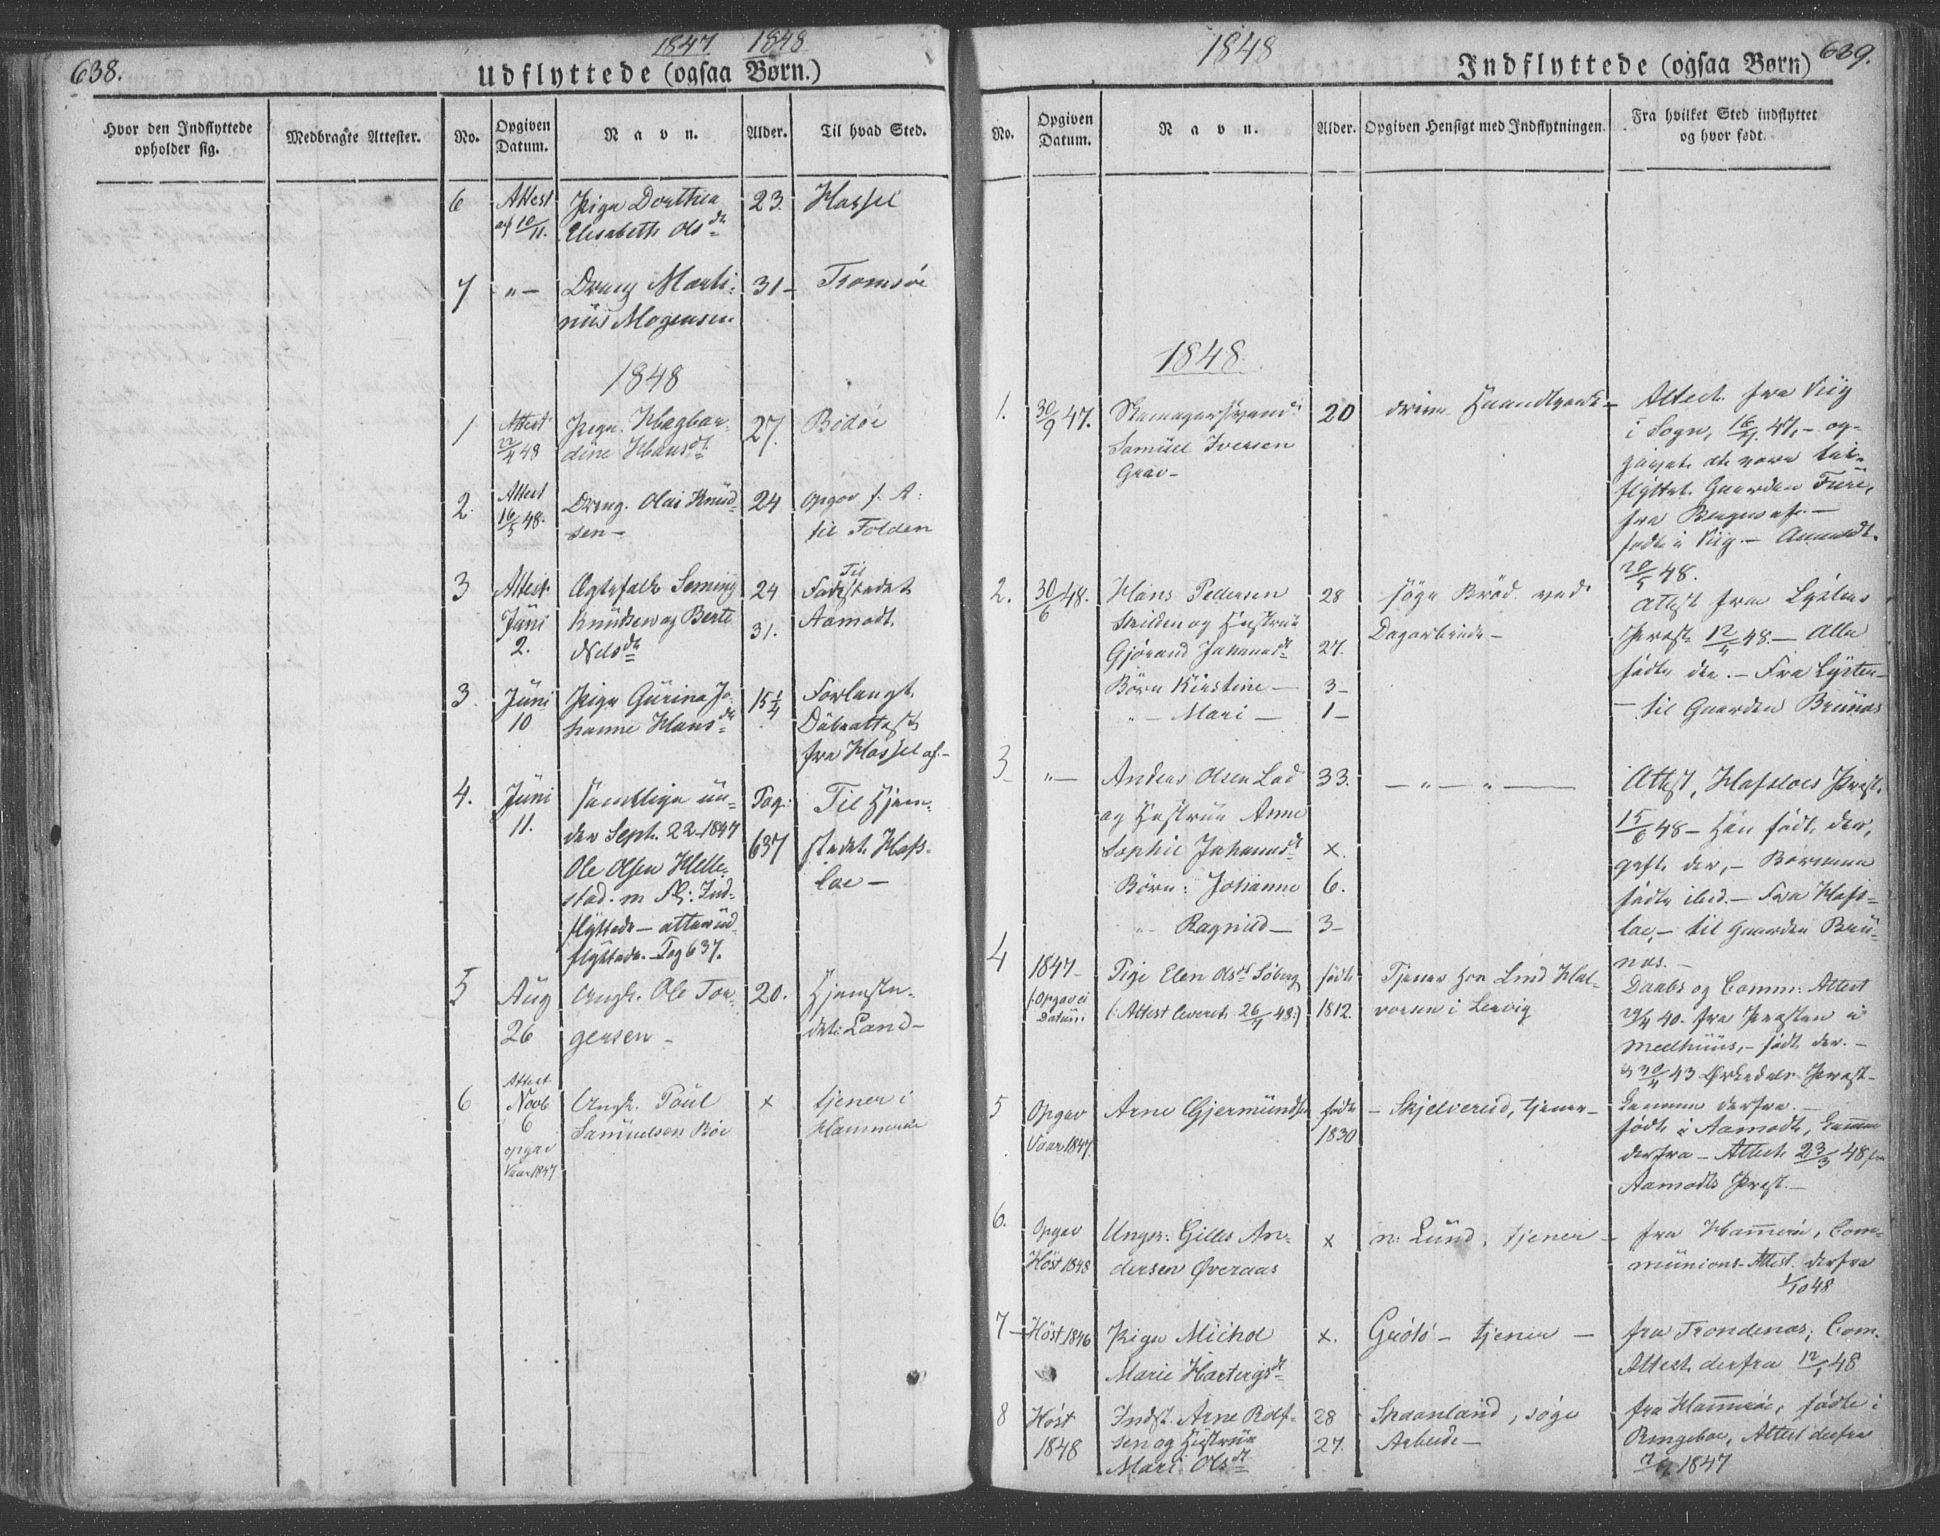 638.
1847 1848
Udflyttede (ogsaa Børn.)
Hvor den Indflyttede
opholder sig.
Medbragte Attester.
No.
Opgiven
Datum.
Navn.
Alder.
Til hvad Sted.
6
Attest
af 10/11.
Pige Dorthea
Elisabeth Olsdr
23.
Hassel
7
- " -
Dreng Marti-
nus Mogensen
31 -
Tromsöe
1848
1
Attest
48
Pige
dine Hansdt.
27.
Bodöe
2.
Attest
16/5 48.
Dreng. Olai Knud-
sen -
24
opgav f. A:
til Folden
3
Attest
Juni
2.
Ægtefolk Seming
Knudsen og Berte
Nelsdtr
24
31.
Til
Fødestedet
Aamodt.
3
Juni
10
Pige Gurina Jo-
hanne Hansdr
15 1/4
Forlangt
Döbeattest
fra Hassel af -
4.
Juni
11.
samtlige un-
der Sept. 22 - 1847
Ole Olsen Helle-
stad. m Fl: Ind-
flyttede - atter ud-
flyttede. - Pag 637.
Pag:
637
Til Hjem-
stedet Hafs-
loe -
5
Aug
26
Ungk. Ole Tor-
gersen -
20.
Hjemste-
det: Land -
6
Attest
Novb
6
opgav
Vaar 1847
Ungk. Poul
Samuelsen Böe
x
tjener i
Hammeröe
1848
Indflyttede (ogsaa Børn)
639.
No.
Opgiven
Datum.
Navn.
Alder.
Opgiven Hensigt med Indflytningen.
Fra hvilket Sted indflyttet
og hvor født.
1848.
1.
30/9 47.
Skomagersvend
Samuel Iversen
Grav -
20
drive Haandverk -
Attest fra Viig
i Sogn, 47, - op-
givet at være ind-
flyttet Gaarden Fure,
fra Bergen af. -
födt i Viig. - Anmeldt.
20/5 48.
2.
30/6 48.
Hans Pedersen
Skilden og Hustrue
Gjörand Johannesdt
Börn Kirstine -
" - Mari -
28
27.
3 -
1 -
söge Bröd ved
Dagarbeide -
Attest fra Lysters
Prest 48 - Alle
födte der. - Fra Lyster -
- til Gaarden Brunes
3
- " -
Anders Olsen Lad
og Hustrue Anne
Sophie Johannesdt
Börn: Johanne
" Ragnild -
33.
x.
6.
3 -
- " - " -
Attest, Hafsloes Prest.
15/6 48 - Han födt der,
gift der, - Börnene
födte ibid. - Fra Hafs-
loe, - til Gaarden Bru-
nes. -
4
1847 -
(: Opgav ei
Datum.
Pige Elen Olsdt Söberg
(: Attest leveret 26/7 48:)
födt
1812.
Tjener hos Lind Hal-
vorsen i Lervig
Daabs og Comm: Attest
29/4 40. fra Presten i
Meelhuus, - födt der. -
43 Ørkedals Prest -
kommen derfra. -
5
Opgav
Vaar 1847.
Arne Gjermundsen
födt
1830
- Skjelvereid, tjener -
födt i Aamodt, kommen
derfra - Attest 23/3 48 fra
Aamodts Prest. -
6.
Opgav
Höst 1848
Ungk: Gilles An-
dersen Øveraas
x
n: Lund, tjener -
fra Hammerö, Com-
munions - Attest. derfra
1/10 48
7 -
Höst 1846
Pige Michol
Marie Hartvigsdt
x.
Gröto - tjener -
fra Trondenæs; Com.
Attest derfra 48
8
Höst
1848
Indst. Arne Rolf-
sen og Hustrue
Mari Olsdt
28
27.
Skaanland, söge
Arbeide -
fra Hammeröe, födte i
Ringeboe, Attest derfra
1847